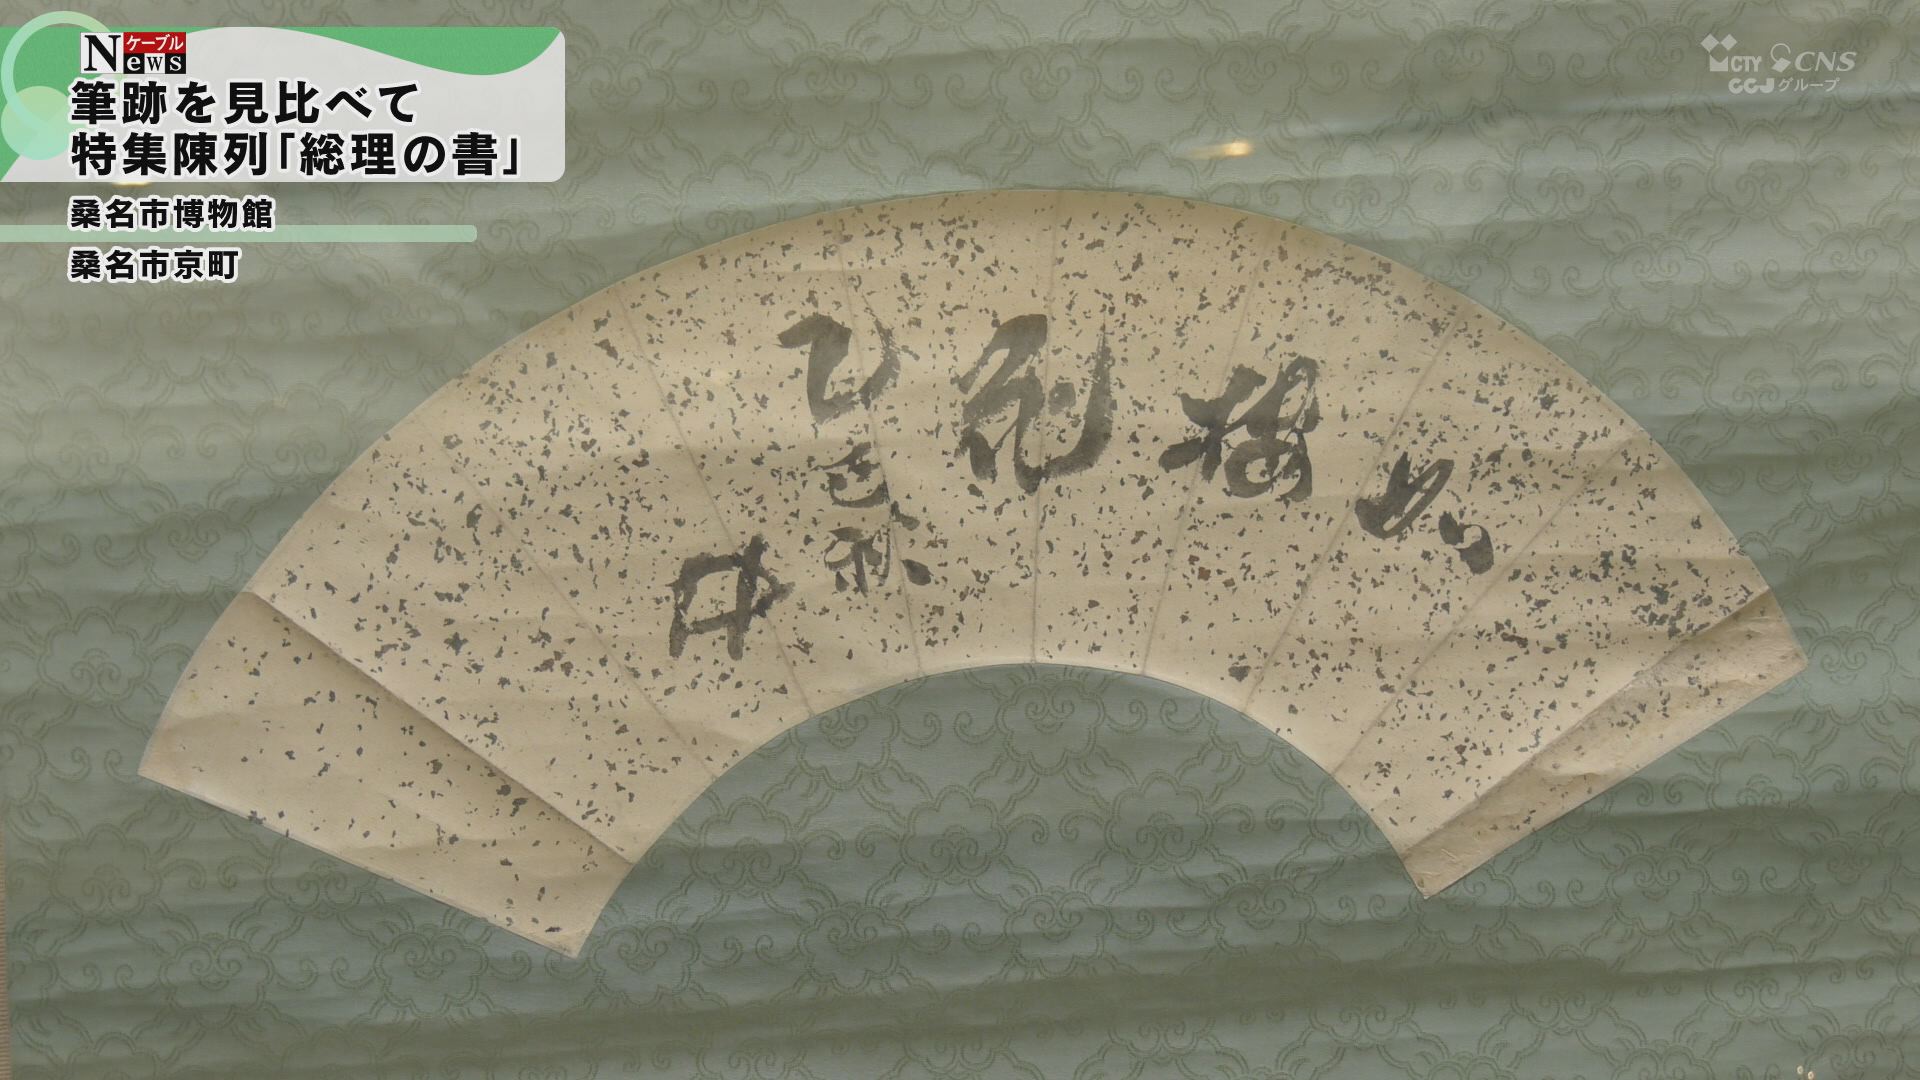 Nケーブル
News
筆跡を見比べて
特集陳列「総理の書」
桑名市博物館
桑名市京町
CTY CNS
CCJグループ